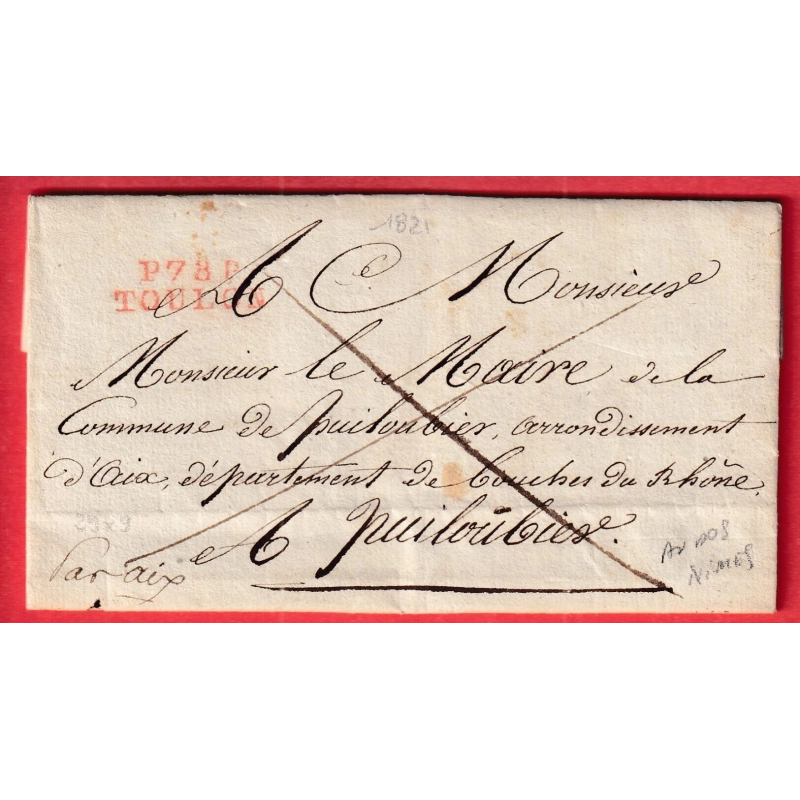 1821
P78P
TOULON
A Monsieur
Monsieur le Maire de la
Commune de Puiloubier, arrondissement
d'Aix, département de Bouches du Rhône,
A Puiloubier.
2989
Par aix
AU DOS
NIMES